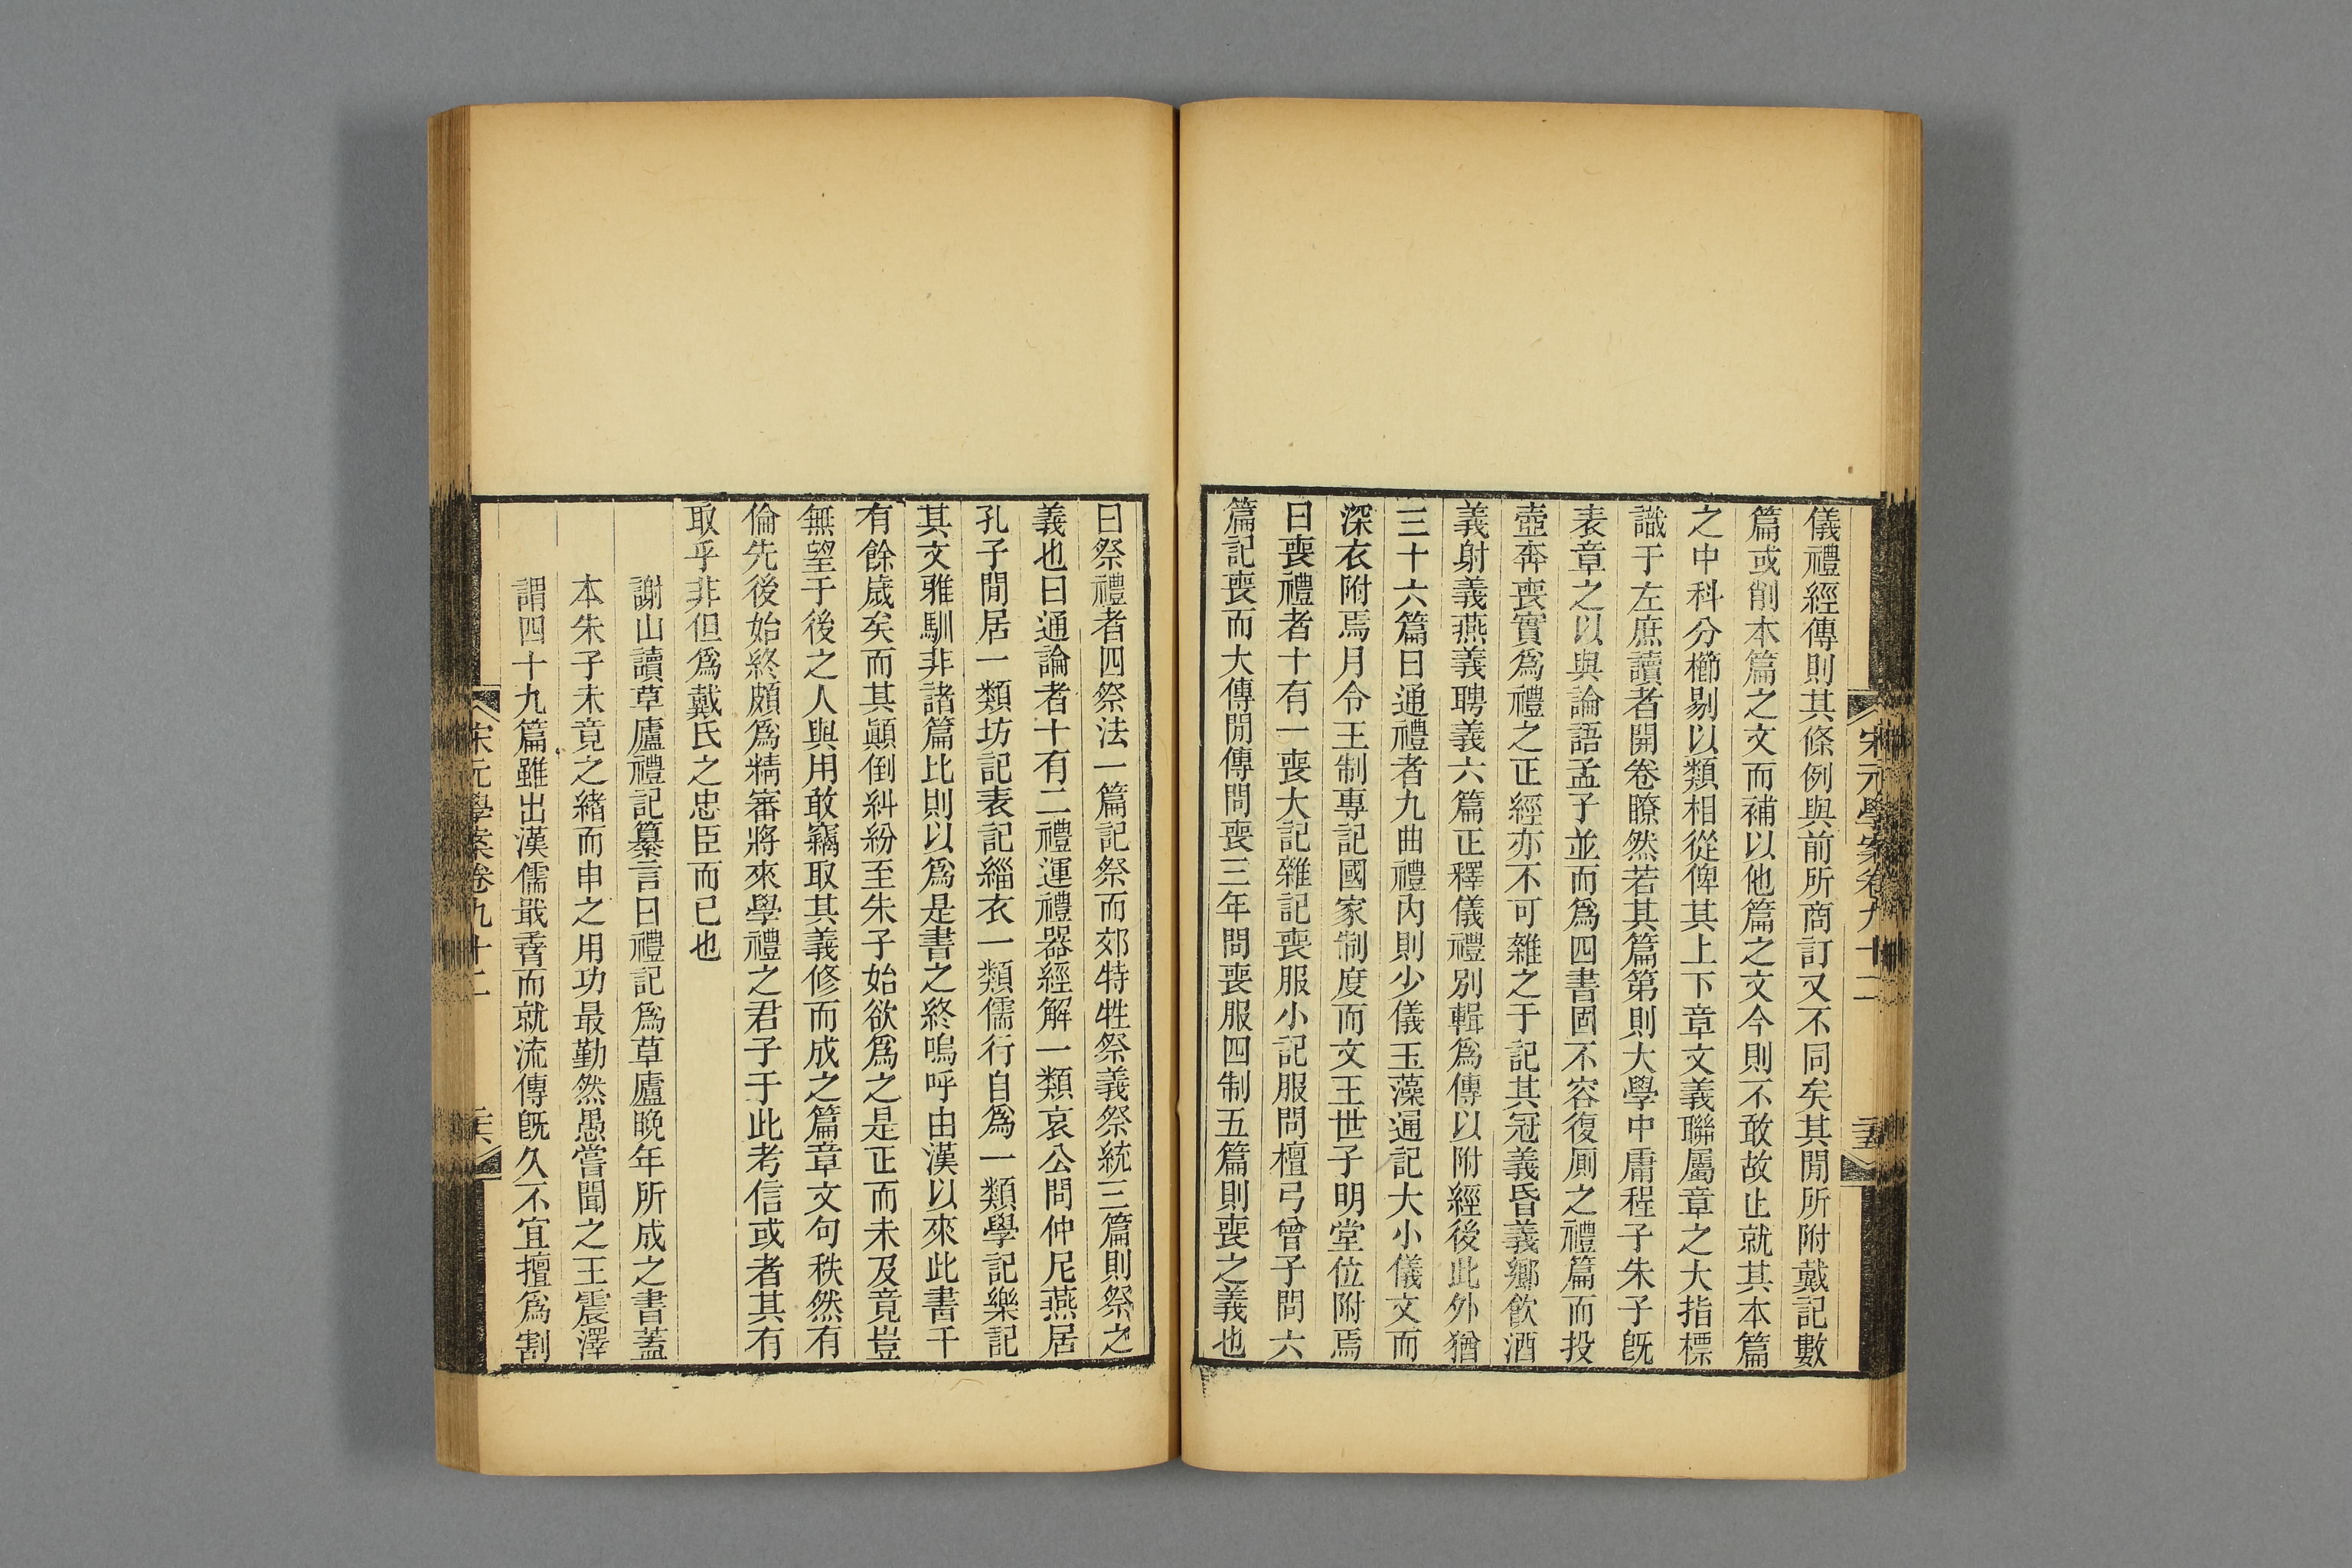 宋元學案卷九十二
二十五
儀禮經傳則其條例與前所商訂又不同矣其閒所附戴記數
篇或削本篇之文而補以他篇之文今則不敢故止就其本篇
之中科分櫛剔以類相從俾其上下章文義聯屬章之大指標
識于左庶讀者開卷瞭然若其篇第則大學中庸程子朱子旣
表章之以與論語孟子並而爲四書固不容復廁之禮篇而投
壺奔喪實爲禮之正經亦不可雜之于記其冠義昏義鄉飮酒
義射義燕義聘義六篇正釋儀禮別輯爲傳以附經後此外猶
三十六篇曰通禮者九曲禮內則少儀玉藻通記大小儀文而
深衣附焉月令王制專記國家制度而文王世子明堂位附焉
曰喪禮者十有一喪大記雜記喪服小記服問檀弓曾子問六
篇記喪而大傳閒傳問喪三年問喪服四制五篇則喪之義也
曰祭禮者四祭法一篇記祭而郊特牲祭義祭統三篇則祭之
義也曰通論者十有二禮運禮器經解一類哀公問仲尼燕居
孔子閒居一類坊記表記緇衣一類儒行自爲一類學記樂記
其文雅馴非諸篇比則以爲是書之終嗚呼由漢以來此書千
有餘歲矣而其顚倒糾紛至朱子始欲爲之是正而未及竟豈
無望于後之人與用敢竊取其義修而成之篇章文句秩然有
倫先後始終頗爲精審將來學禮之君子于此考信或者其有
取乎非但爲戴氏之忠臣而已也
謝山讀草廬禮記纂言曰禮記爲草廬晚年所成之書蓋
本朱子未竟之緒而申之用功最勤然愚嘗聞之王震澤
謂四十九篇雖出漢儒戢孴而就流傳旣久不宜擅爲割
宋元學案卷九十二
二十六